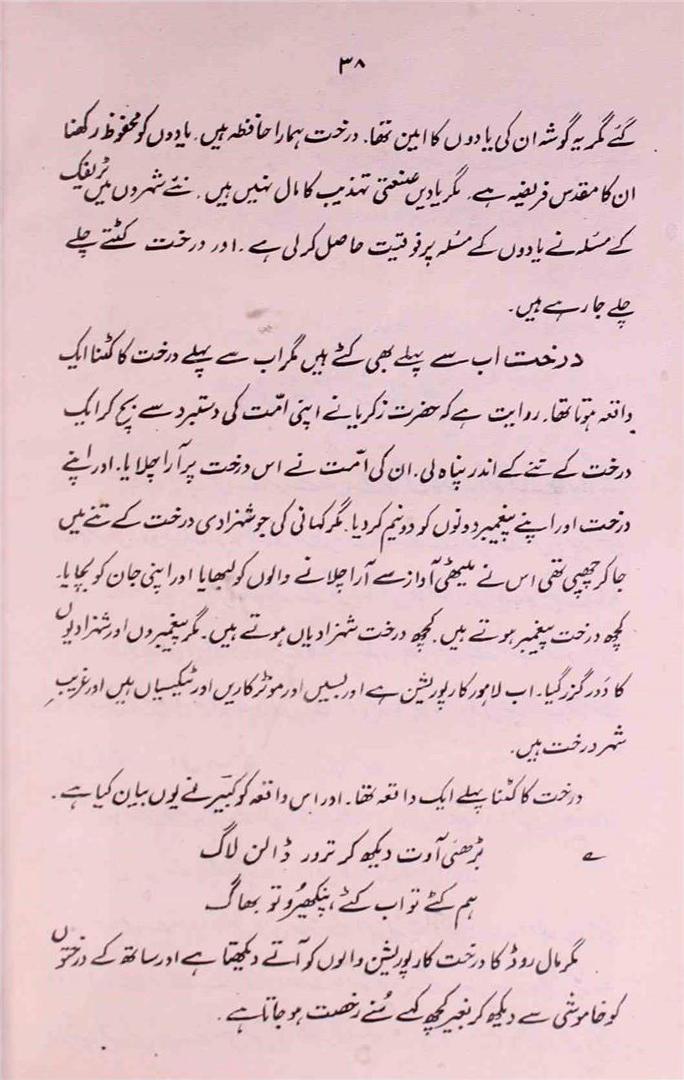 ۳۸
گئے مگر یہ گوشہ ان کی یادوں کا امین تھا۔ درخت ہمارا حافظہ ہیں۔ یادوں کو محفوظ رکھنا
ان کا مقدس فریضہ ہے۔ مگر یادیں صنعتی تہذیب کا مال نہیں ہیں۔ نئے شہروں میں ٹریفک
کے مسئلہ نے یادوں کے مسئلہ پر فوقیت حاصل کر لی ہے۔ اور درخت کٹتے چلے
چلے جا رہے ہیں۔
درخت اب سے پہلے بھی کٹے ہیں مگر اب سے پہلے درخت کا کٹنا ایک
واقعہ ہوتا تھا۔ روایت ہے کہ حضرت زکریا نے اپنی امّت کی دستبرد سے بچ کر ایک
درخت کے تنے کے اندر پناہ لی۔ ان کی امّت نے اس درخت پر آرا چلایا۔ اور اپنے
درخت اور اپنے پیغمبر دونوں کو دونیم کر دیا۔ مگر کہانی کی جو شہزادی درخت کے تنے میں
جا کر چھپی تھی اس نے میٹھی آواز سے آرا چلانے والوں کو لبھایا اور اپنی جان کو بچایا۔
کچھ درخت پیغمبر ہوتے ہیں۔ کچھ درخت شہزادیاں ہوتے ہیں۔ مگر پیغمبروں اور شہزادیوں
کا دَور گزر گیا۔ اب لاہور کارپوریشن ہے اور بسیں اور موٹر کاریں اور ٹیکسیاں ہیں اور غریب
شہر درخت ہیں۔
درخت کا کٹنا پہلے ایک واقعہ تھا۔ اور اس واقعہ کو کبیر نے یوں بیان کیا ہے۔
؎ بڑھئی آوت دیکھ کر ترور ڈالن لاگ
ہم کٹے تو اب کٹے، پنکھیرُو تو بھاگ
مگر مال روڈ کا درخت کارپوریشن والوں کو آتے دیکھتا ہے اور ساتھ کے درختوں
کو خاموشی سے دیکھ کر بغیر کچھ کہے سُنے رخصت ہو جاتا ہے۔